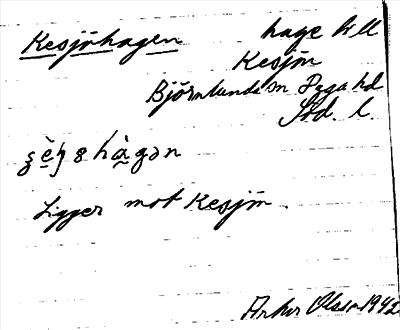 Kesjöhagen hage t. ll
Kesjön
Björnlunda sn Daga hd
Söd. l.
Ligger mot Kesjön.
Olsson 1942